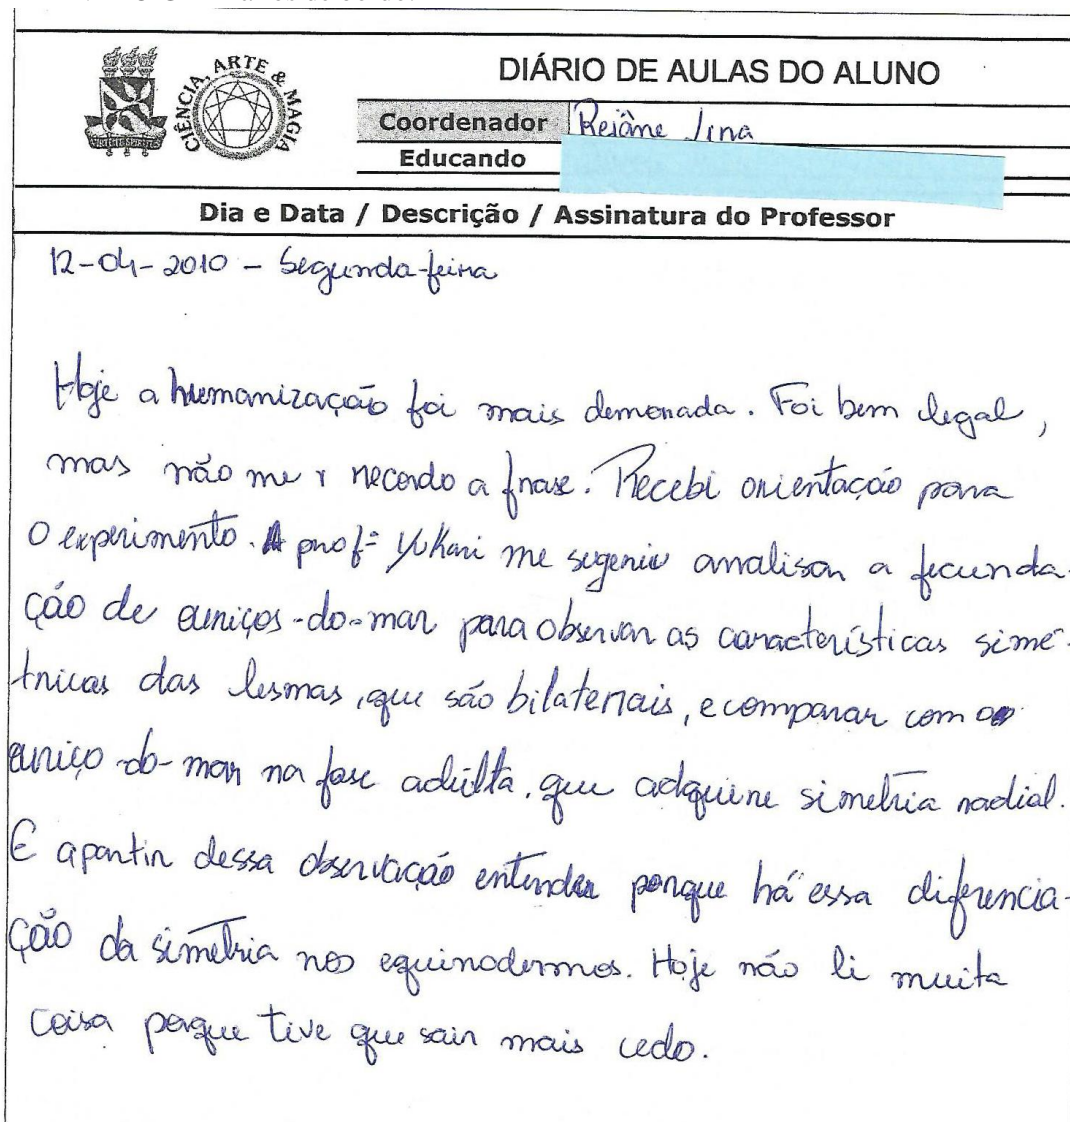 CIÊNCIA, ARTE & MAGIA
DIÁRIO DE AULAS DO ALUNO
Coordenador Rejâne Lira
Educando
Dia e Data / Descrição / Assinatura do Professor
12-04-2010 - Segunda-feira
Hoje a humanização foi mais demorada. Foi bem legal,
mas não me r recordo a frase. Recebi orientação para
o experimento. A profª Yukari me sugeriu analisar a fecunda-
ção de euriços-do-mar para observar as características simé-
tricas das lesmas, que são bilaterais, e comparar com o
euriço-do-mar na fase adulta, que adquire simetria radial.
E apartir dessa observação entender porque há essa diferencia-
ção da simetria nos equinodermos. Hoje não li muita
coisa porque tive que sair mais cedo.